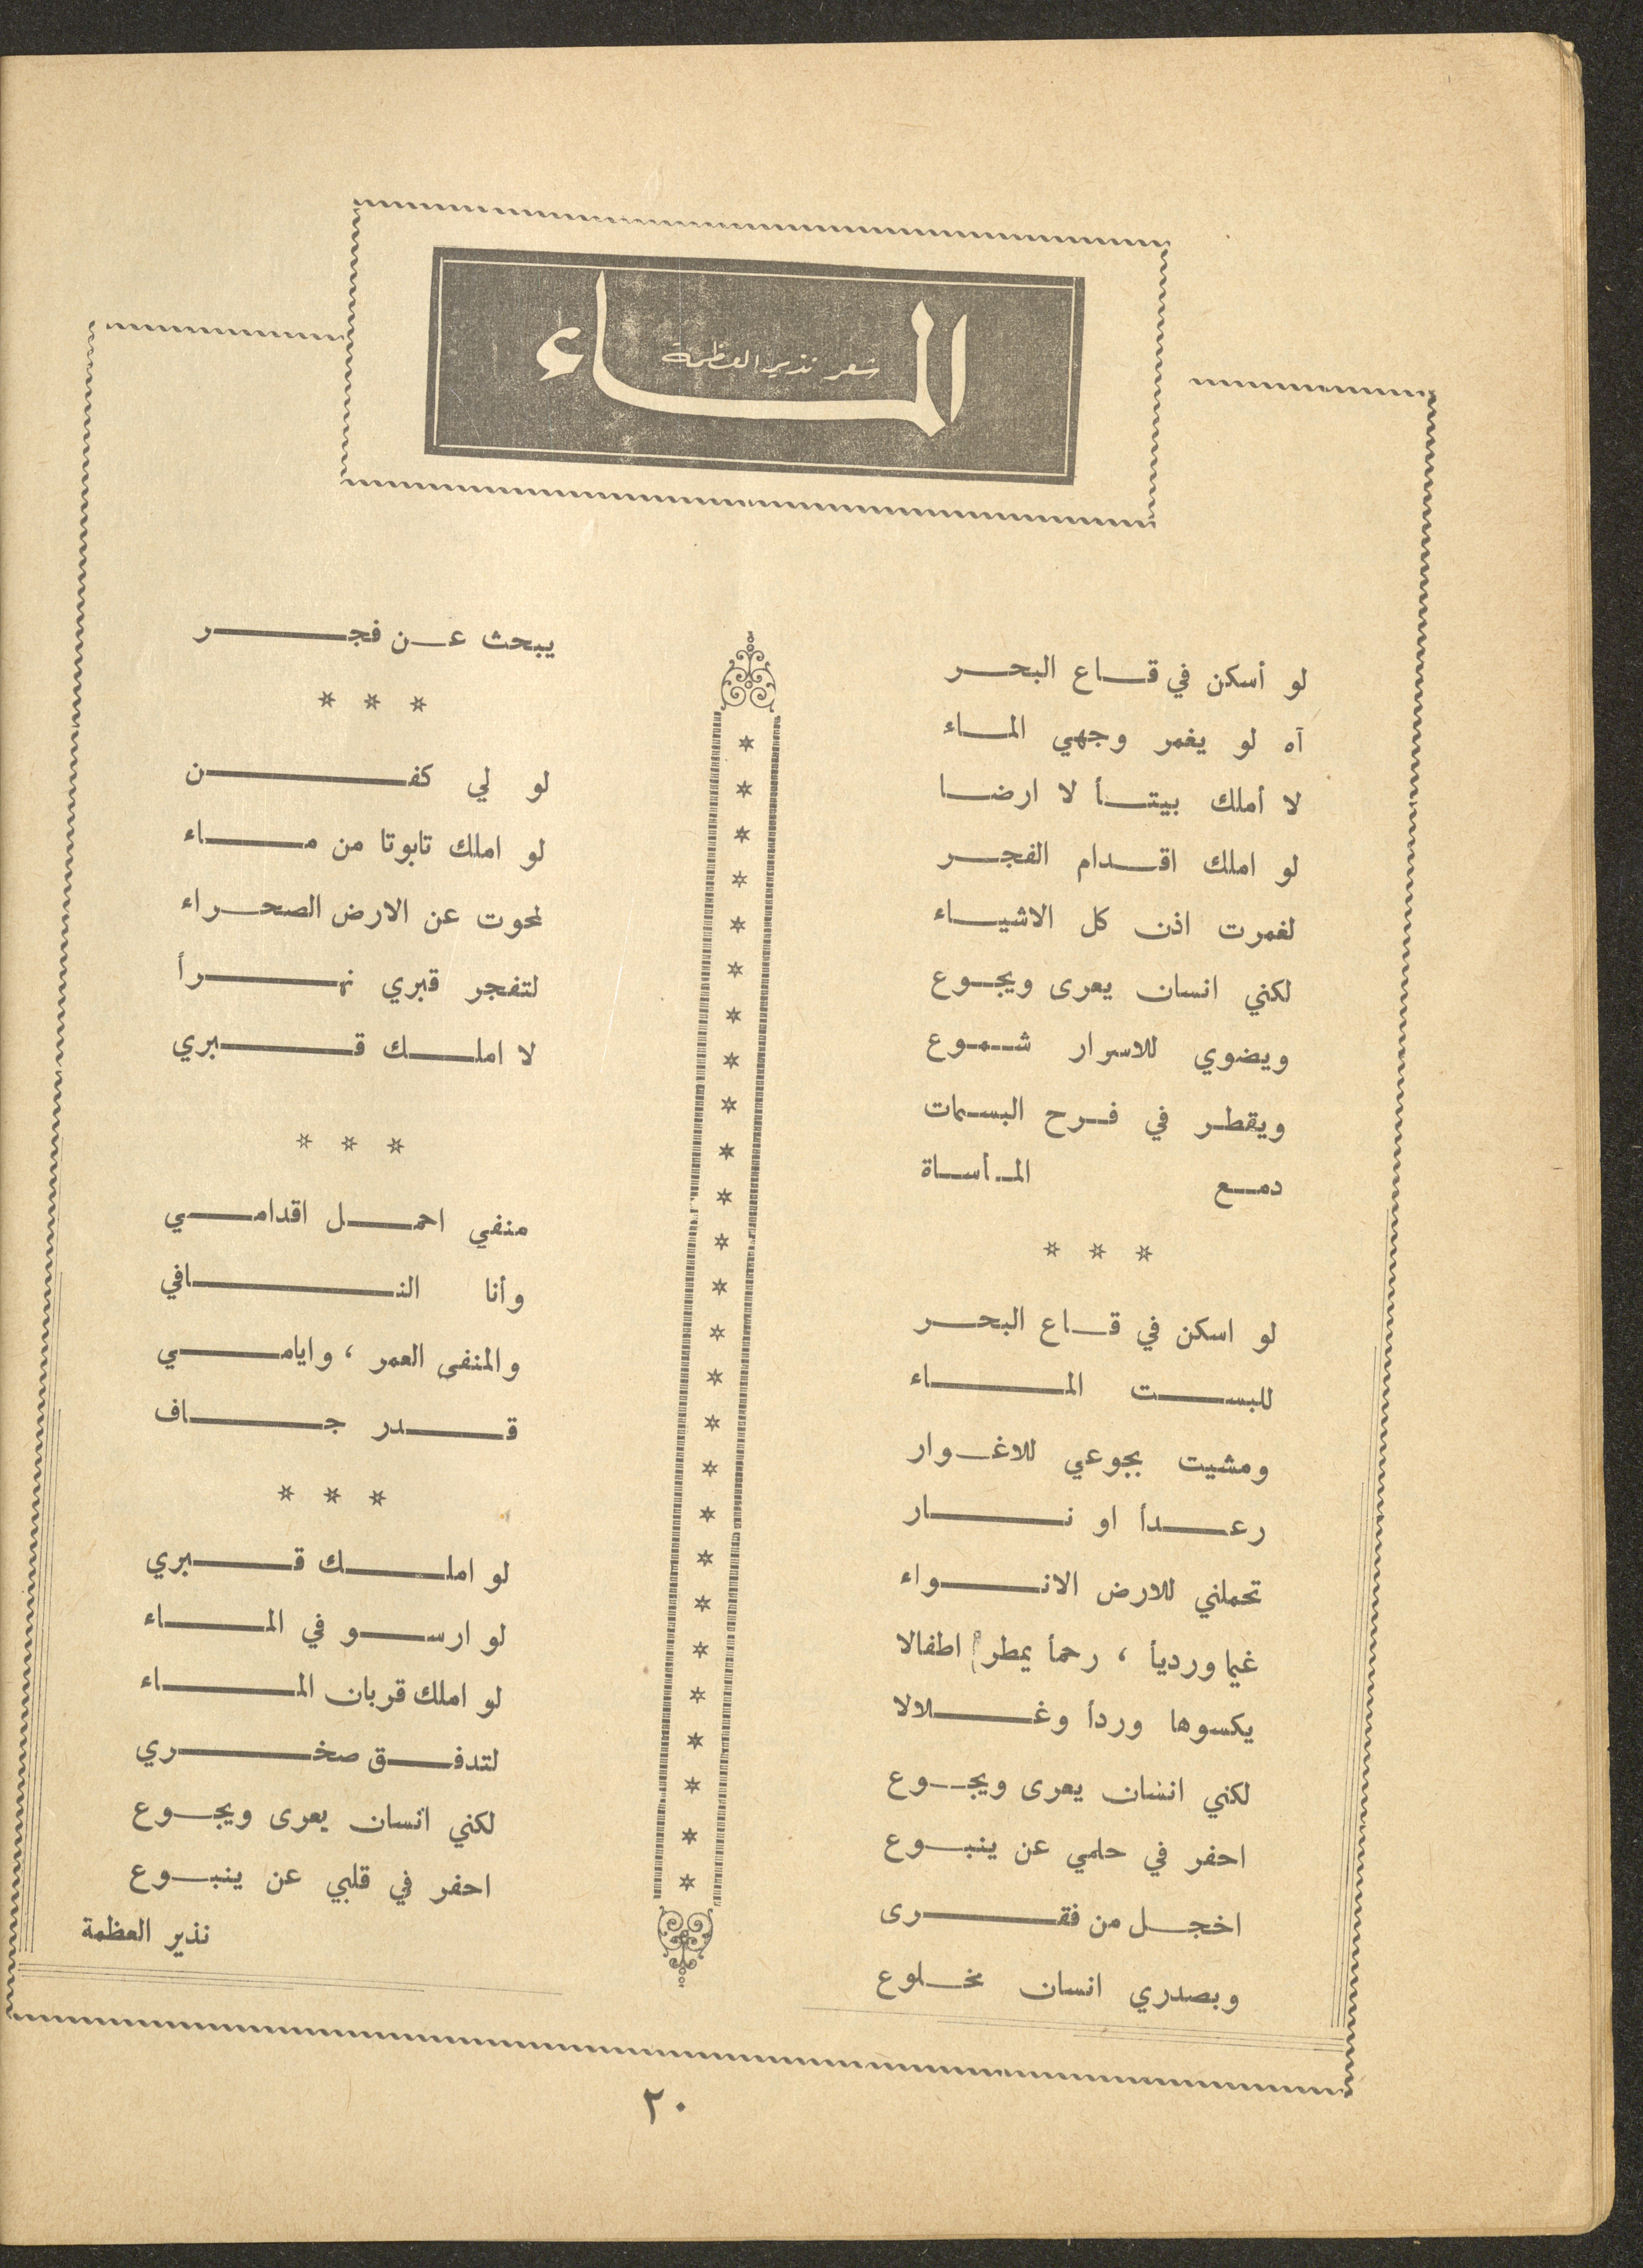 الماء
شعر نذير العظمة
لو أسكن في قاع البحر
آه لو يغمر وجهي الماء
لا أملك بيتأ لا ارضا
لو املك اقدام الفجر
لغمرت اذن كل الاشياء
لكني انسان يعرى ويجوع
ويضوي للاسرار شموع
ويقطر في فرح البسمات
دمع المأساة
* * *
لو اسكن في قاع البحر
للبست الماء
ومشيت بجوعي للاغوار
رعدأ او نار
تحملني للارض الانواء
غيما ورديأ ، رحمأ يمطر اطفالا
يكسوها وردأ وغلالا
لكني انسان يعرى ويجوع
احفر في حلمي عن ينبوع
اخجل من فقرى
وبصدري انسان مخلوع
يبحث عن فجر
* * *
لو لي كفن
لو املك تابوتا من ماء
لمحوت عن الارض الصحراء
لتفجر قبري نهرأ
لا املك قبري
* * *
منفي احمل اقدامي
وأنا النافي
والمنفى العمر ، وايامي
قدر جاف
* * *
لو املك قبري
لو ارسو في الماء
لو املك قربان الماء
لتدفق صخري
لكني انسان يعرى ويجوع
احفر في قلبي عن ينبوع
نذير العظمة
٢٠